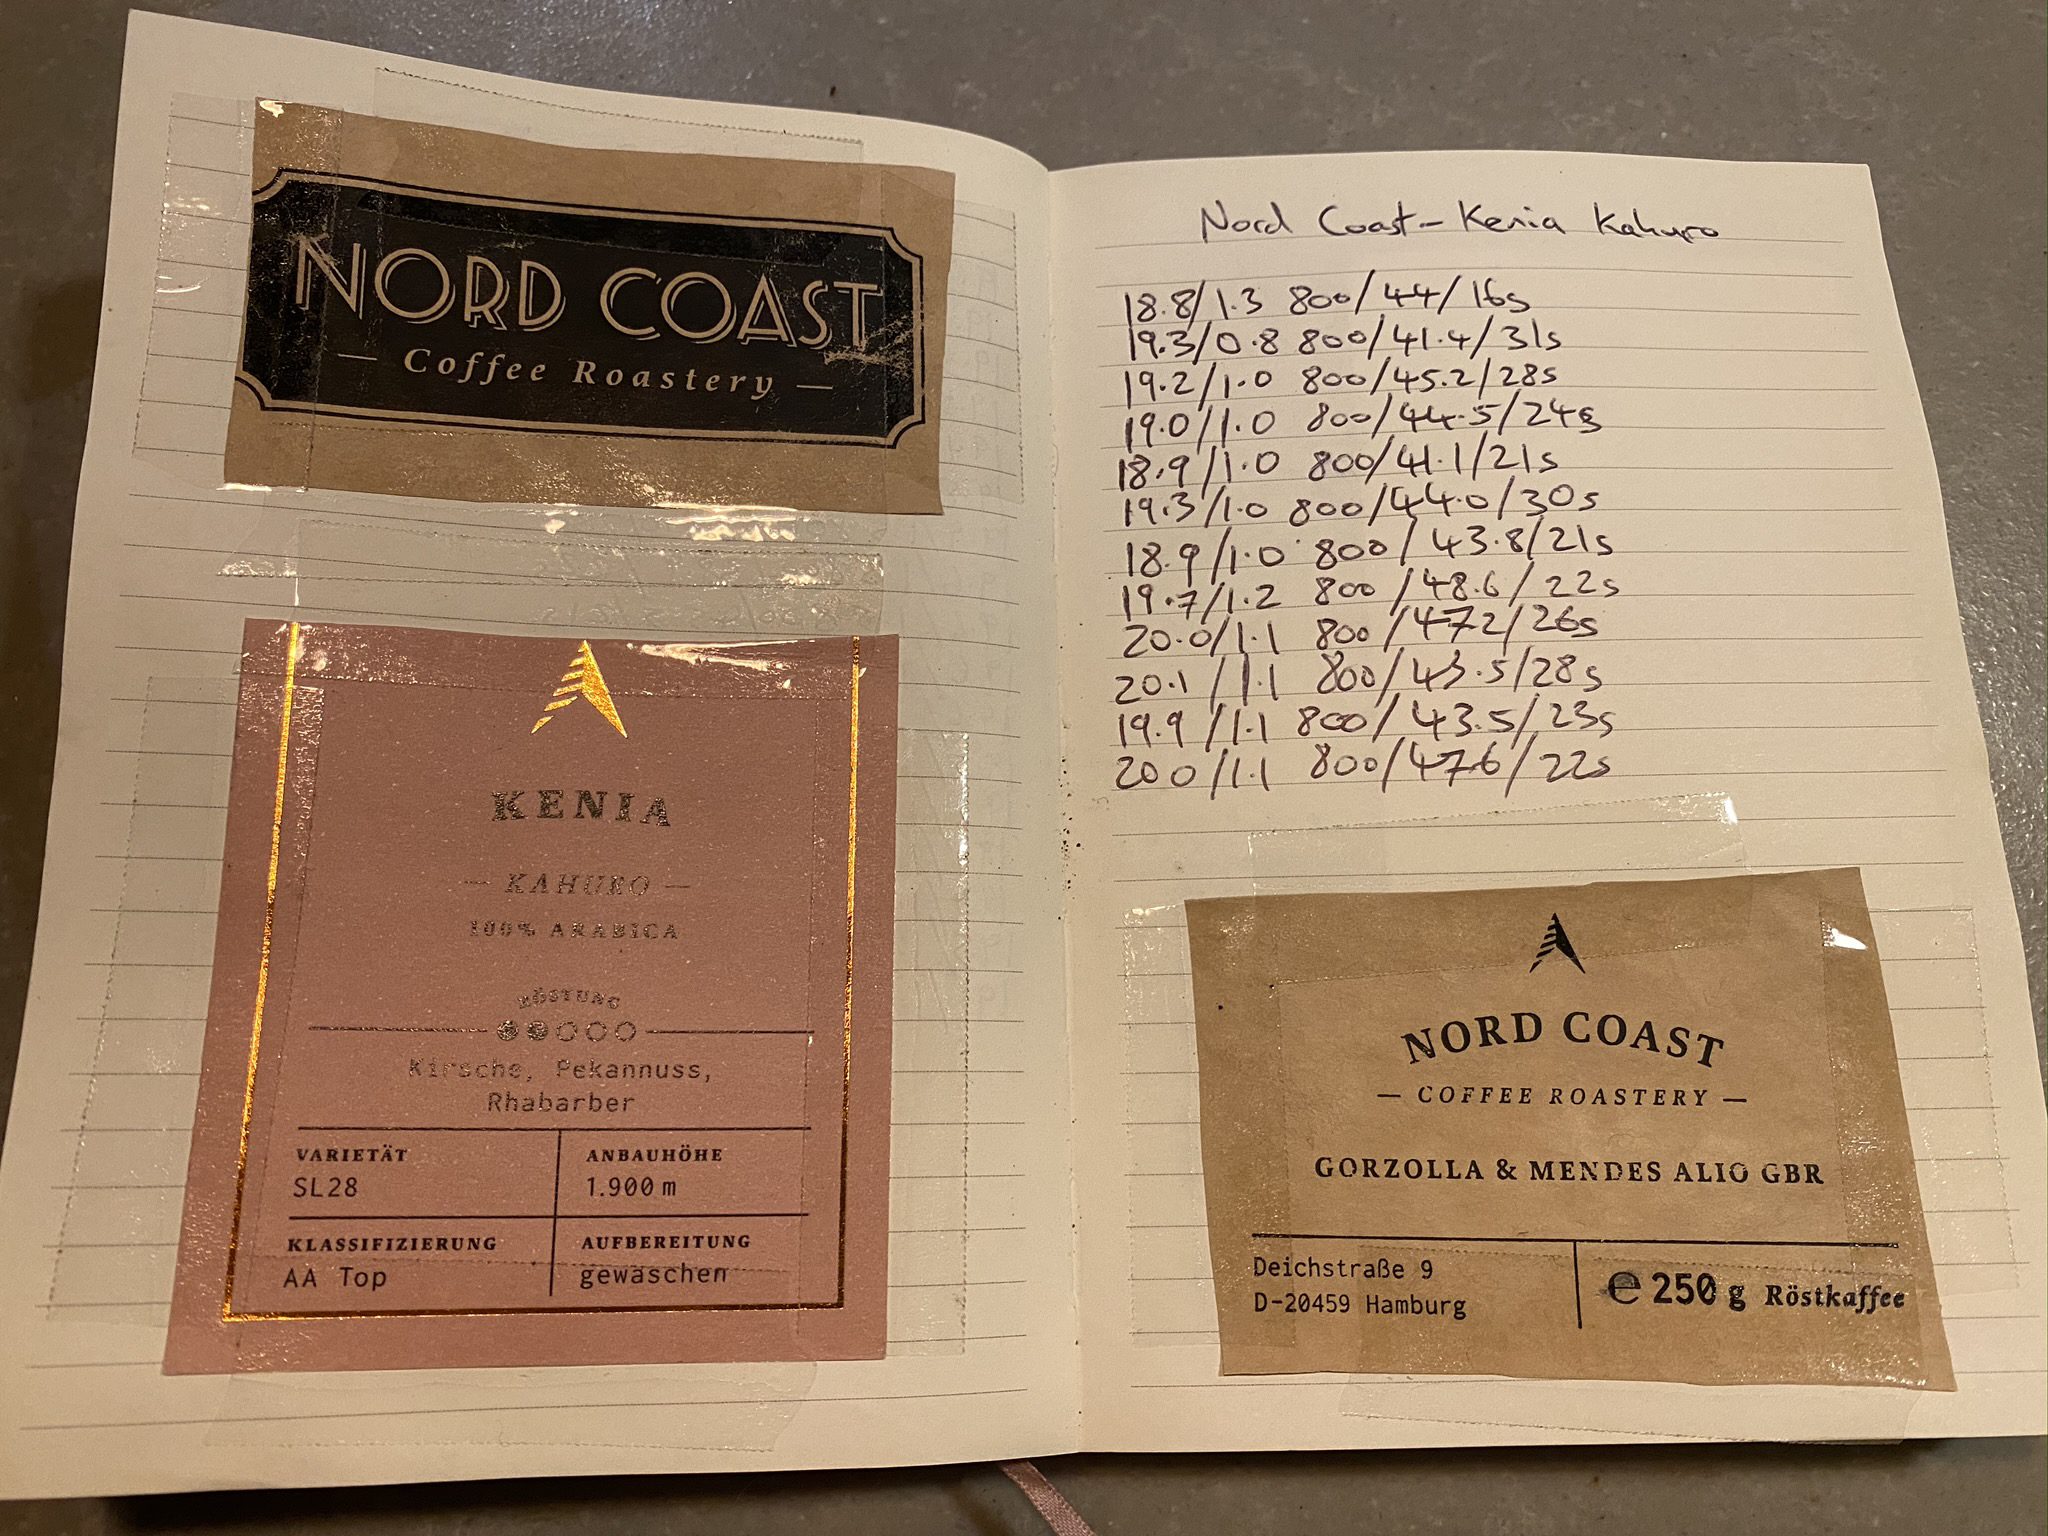 NORD COAST
— Coffee Roastery —
KENIA
— KAHURO —
100% ARABICA
RÖSTUNG
Kirsche, Pekannuss,
Rhabarber
VARIETÄT
SL28
ANBAUHÖHE
1.900 m
KLASSIFIZIERUNG
AA Top
AUFBEREITUNG
gewaschen
Nord Coast - Kenia Kahuro
18.8/1.3 800/44/16s
19.3/0.8 800/41.4/31s
19.2/1.0 800/45.2/28s
19.0/1.0 800/44.5/24s
18.9/1.0 800/41.1/21s
19.3/1.0 800/44.0/30s
18.9/1.0 800/43.8/21s
19.7/1.2 800/48.6/22s
20.0/1.1 800/472/26s
20.1/1.1 800/43.5/28s
19.9/1.1 800/43.5/23s
200/1.1 800/476/22s
NORD COAST
— COFFEE ROASTERY —
GORZOLLA & MENDES ALIO GBR
Deichstraße 9
D-20459 Hamburg
℮ 250 g Röstkaffee